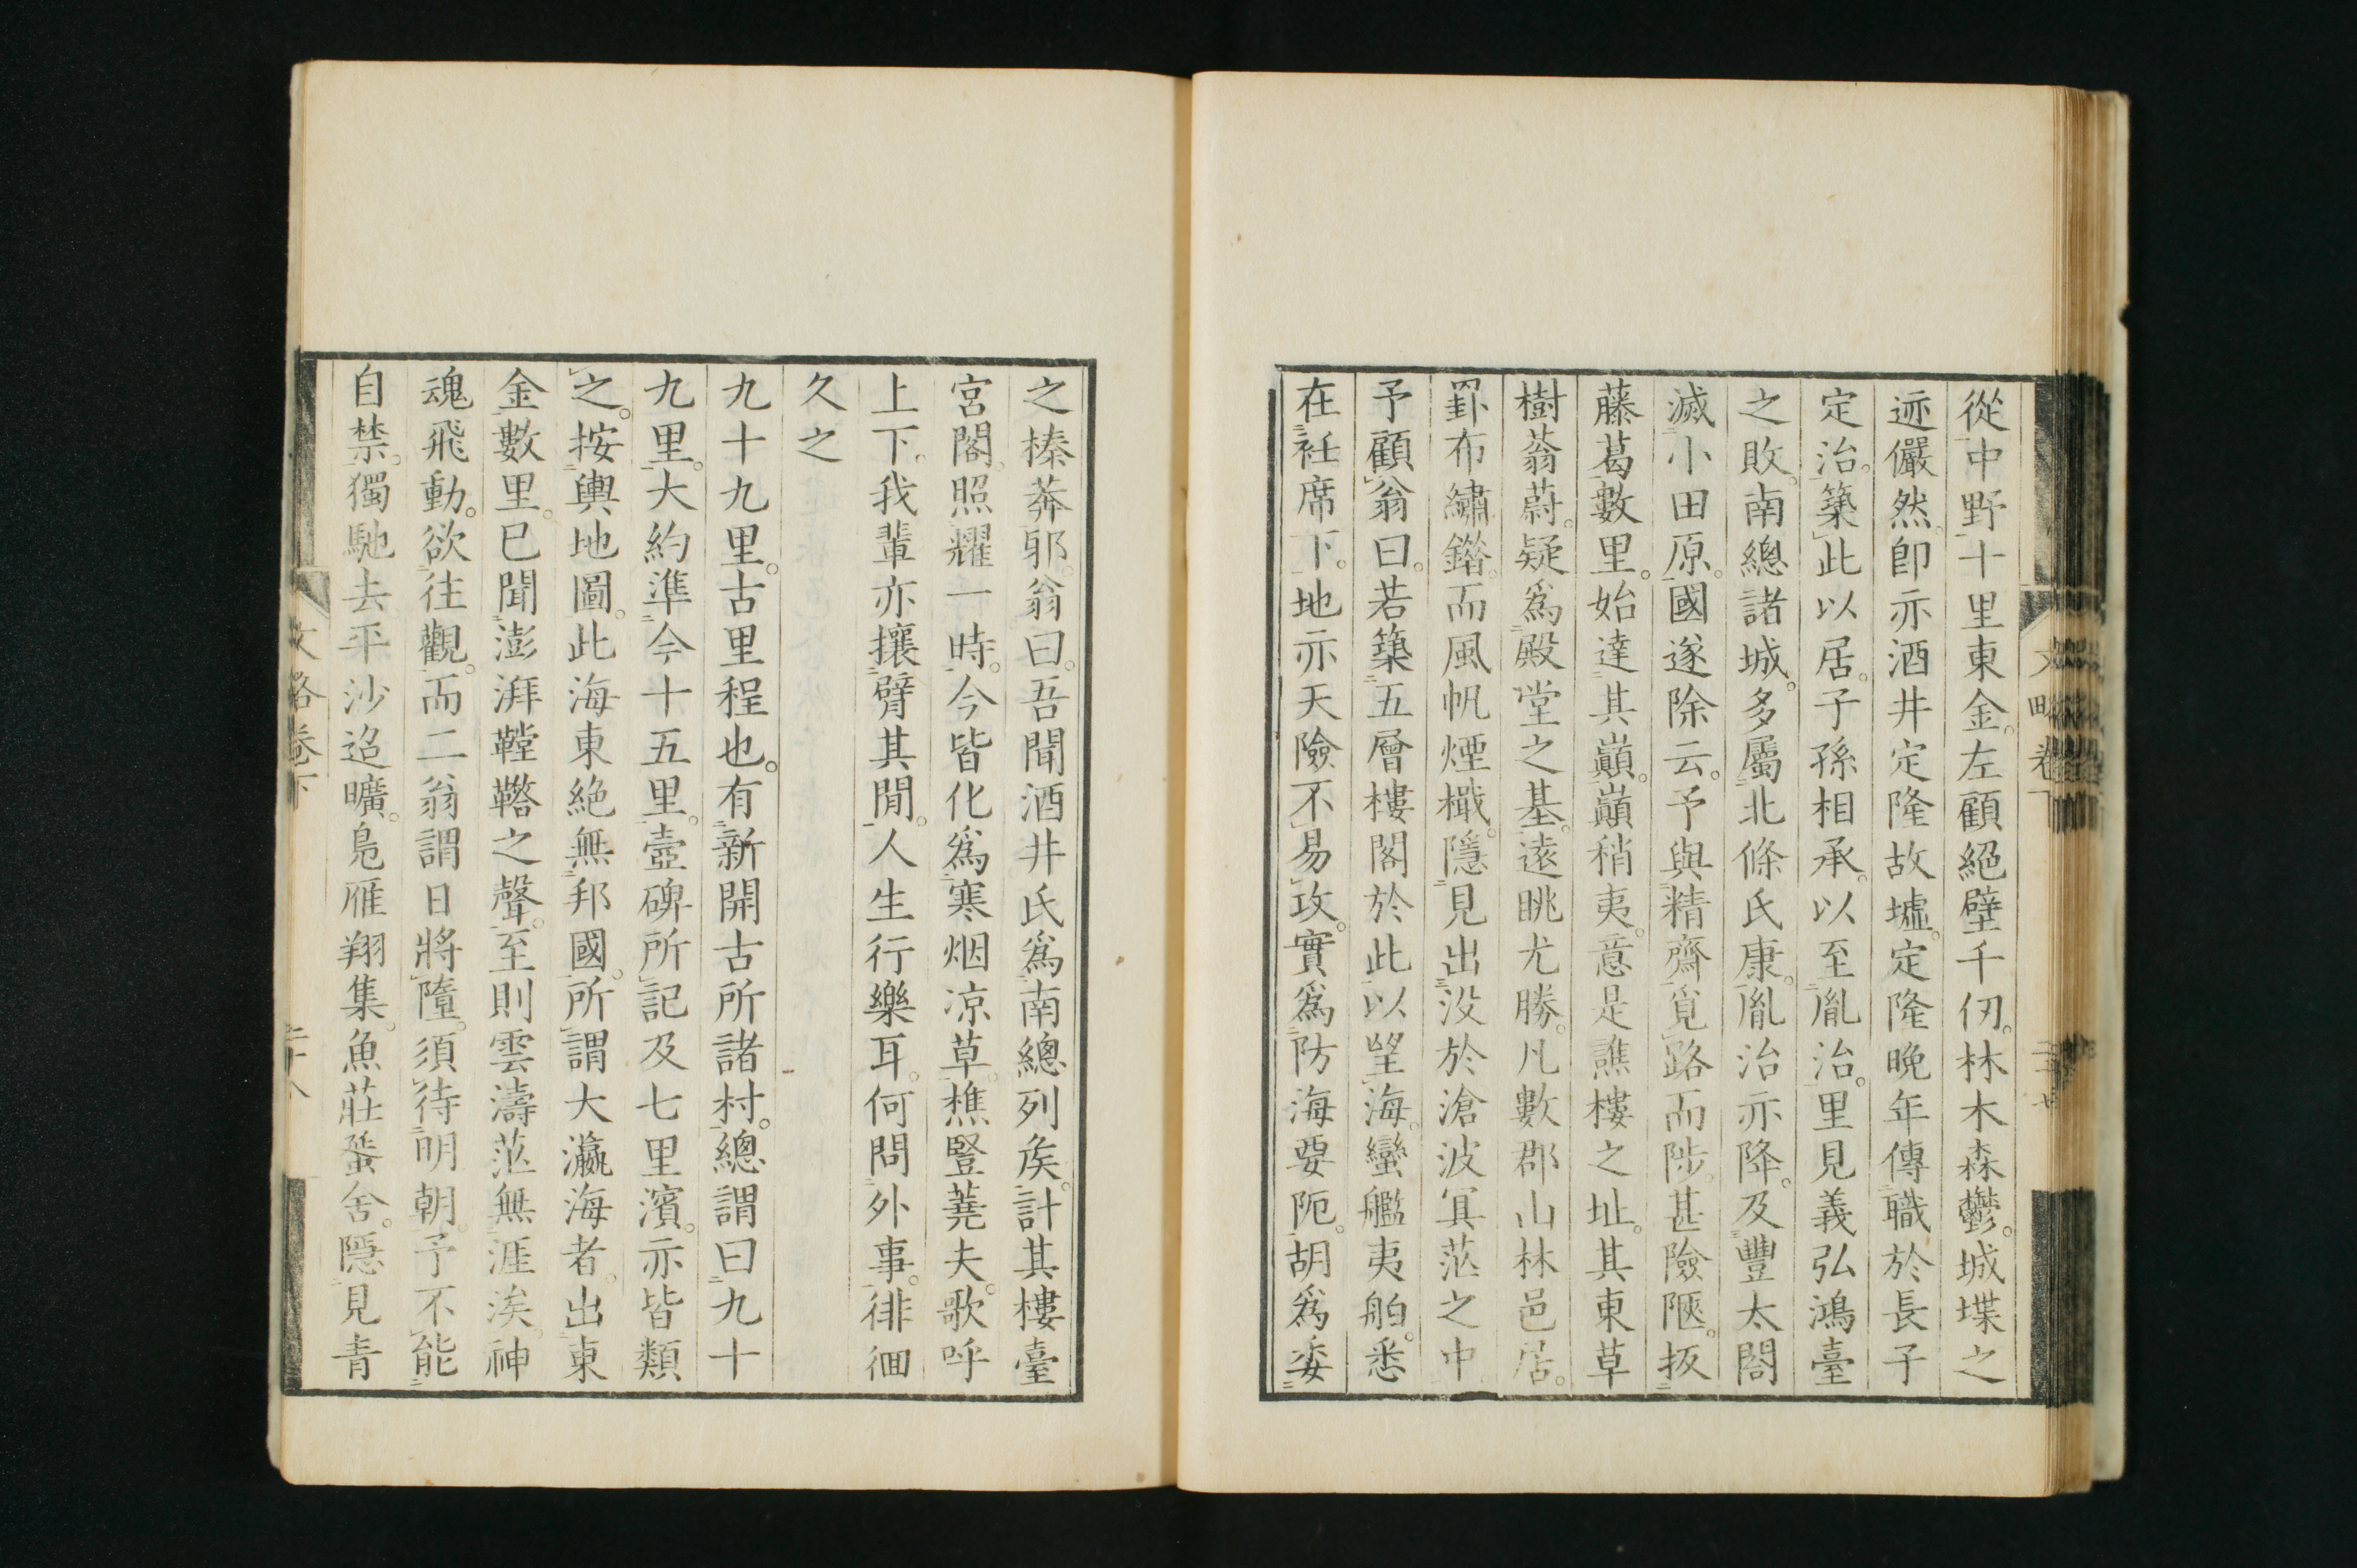 從中野十里東金。左顧絕壁千仞。林木森鬱。城堞之
迹儼然。卽亦酒井定隆故墟。定隆晚年傳職於長子
定治。築此以居。子孫相承。以至胤治。里見義弘鴻臺
之敗。南總諸城。多屬北條氏康。胤治亦降。及豐太閤
滅小田原。國遂除云。予與精齋覓路而陟。甚險陿。扳
藤葛數里。始達其巔。巔稍夷。意是譙樓之址。其東草
樹蓊蔚。疑爲殿堂之基。遠眺尤勝。凡數郡山林邑居。
罫布繡錯。而風帆煙檣。隱見出沒於滄波冥茫之中
予顧翁曰。若築五層樓閣於此。以望海。蠻艦夷舶。悉
在衽席下。地亦天險不易攻。實爲防海要阨。胡爲委
之榛莽耶。翁曰。吾聞酒井氏爲南總列矦。計其樓臺
宮閣。照耀一時。今皆化爲寒烟凉草。樵豎蕘夫。歌呼
上下。我輩亦攘臂其閒。人生行樂耳。何問外事。徘徊
久之
九十九里。古里程也。有新開古所諸村。總謂曰九十
九里。大約準今十五里。壼碑所記及七里濱。亦皆類
之。按輿地圖。此海東絶無邦國。所謂大瀛海者。出東
金數里。已聞澎湃鞺鞳之聲。至則雲濤茫無涯涘。神
魂飛動。欲往觀。而二翁謂日將隋。須待明朝。予不能
自禁。獨馳去平沙迢曠。鳧雁翔集。魚莊蜑舍。隱見青
文略卷下
二十八